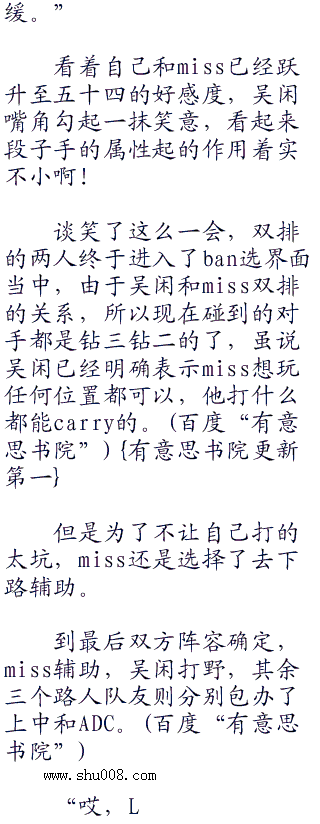 缓。”
看着自己和miss已经跃
升至五十四的好感度，吴闲
嘴角勾起一抹笑意，看起来
段子手的属性起的作用着实
不小啊！
谈笑了这么一会，双排
的两人终于进入了ban选界面
当中，由于吴闲和miss双排
的关系，所以现在碰到的对
手都是钻三钻二的了，虽说
吴闲已经明确表示miss想玩
任何位置都可以，他打什么
都能carry的。(百度“有意
思书院”){有意思书院更新
第一}
但是为了不让自己打的
太坑，miss还是选择了去下
路辅助。
到最后双方阵容确定，
miss辅助，吴闲打野，其余
三个路人队友则分别包办了
上中和ADC。(百度“有意思
书院”)
www.shu008.com
“哎，L